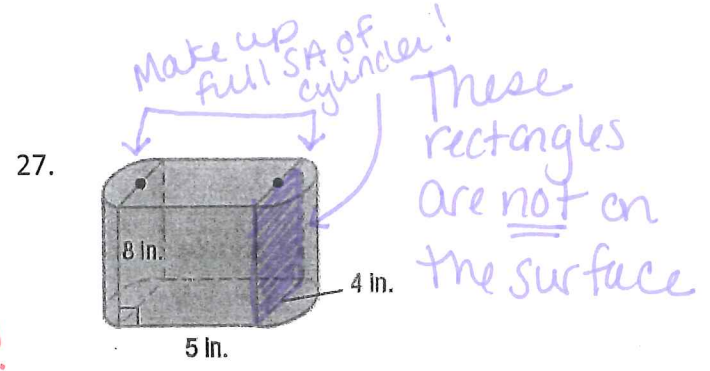 Make up
full SA of
cylinder!
These
rectangles
are not on
the surface
27.
8 in.
4 in.
5 in.